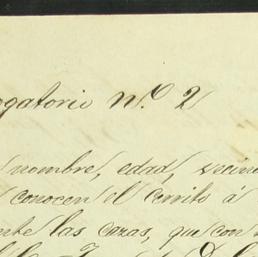 ogatorio n.º 2
nombre, edad, vecin
conocen el cerrito á
nte las cazas, que con